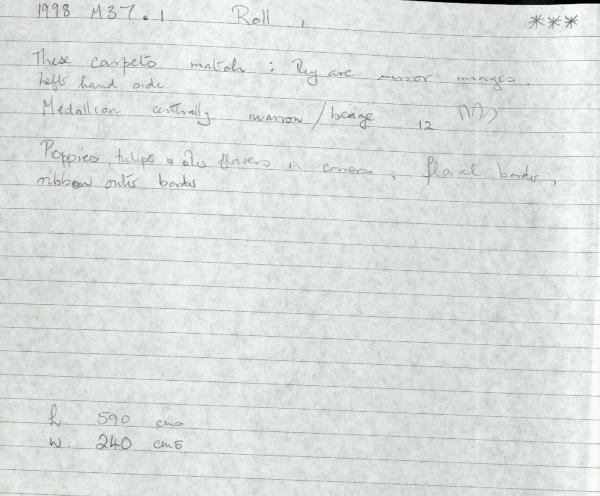 1998 M37.1 Roll 1 ***
These carpets match : They are mirror images.
Left hand side
Medallion centrally maroon/beige 12
Poppies, tulips & other flowers in corners, floral border,
ribbon outer border
h 590 cms
w. 240 cms